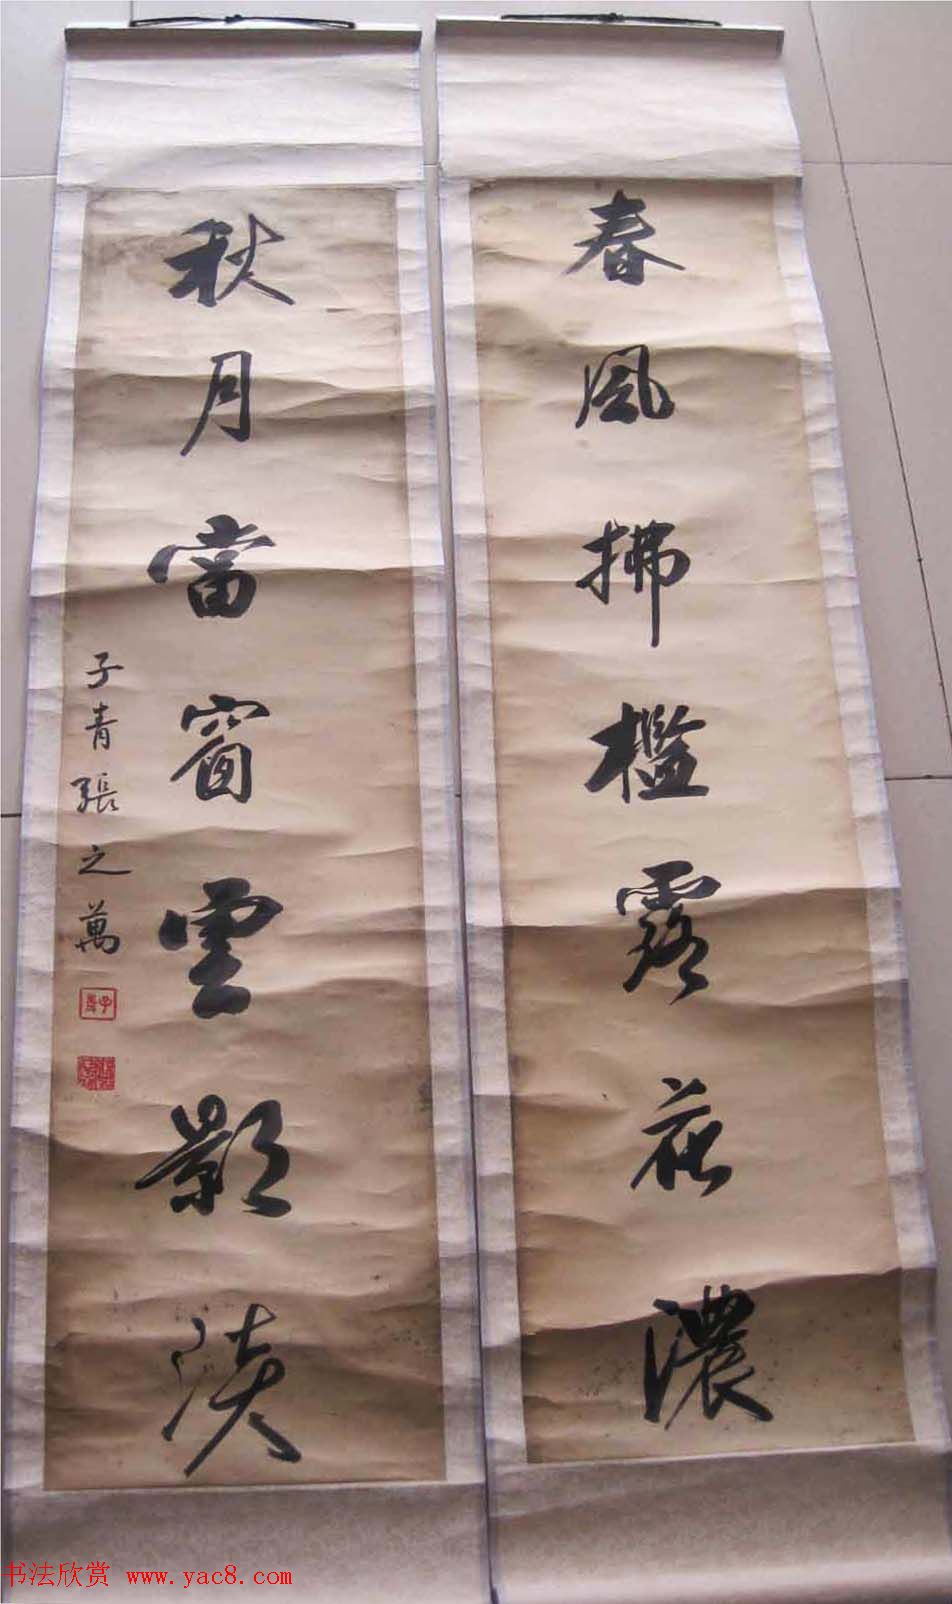 春風拂檻露花濃
秋月當窗雲影淡
子青張之萬
书法欣赏 www.yac8.com